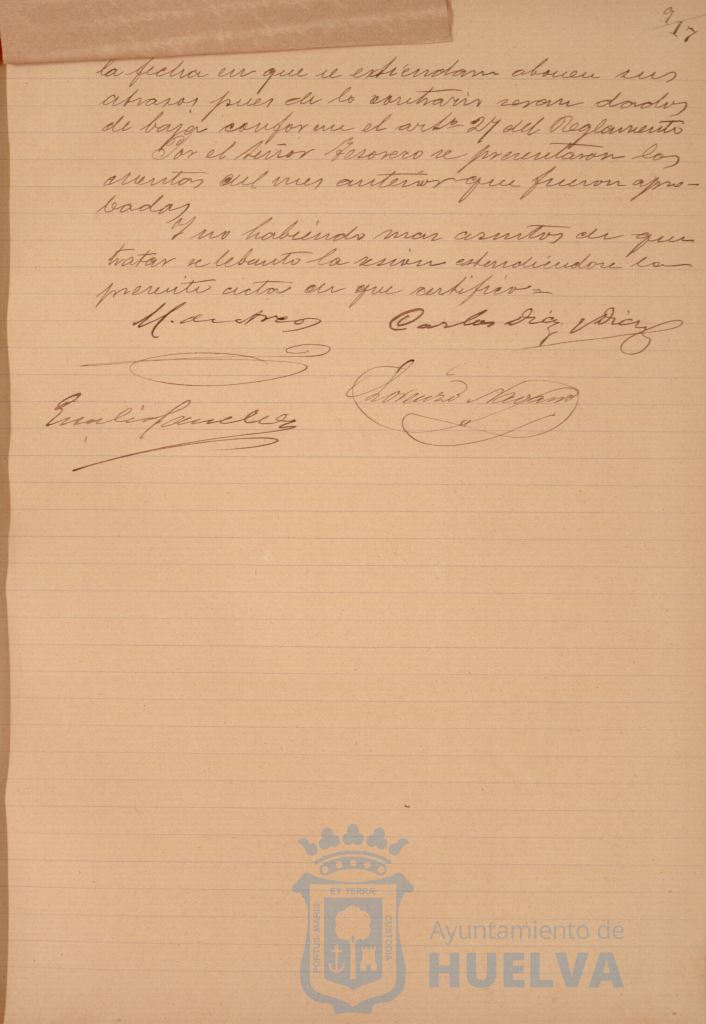 9/17
la fecha en que se extiendan abonen sus
atrasos pues de lo contrario seran dados
de baja conforme el artº 27 del Reglamento
Por el Señor Tesorero se presentaron las
cuentas del mes anterior que fueron apro-
badas
Y no habiendo mas asuntos de que
tratar se lebanto la sesion estendiendose la
presente acta de que certifico=
M. de Arcos Carlos Diaz y Diaz
Lorenzo Navarro
Emilio Sanchez
ET TERRÆ
PORTUS MARIS
CUSTODIA
Ayuntamiento de
HUELVA